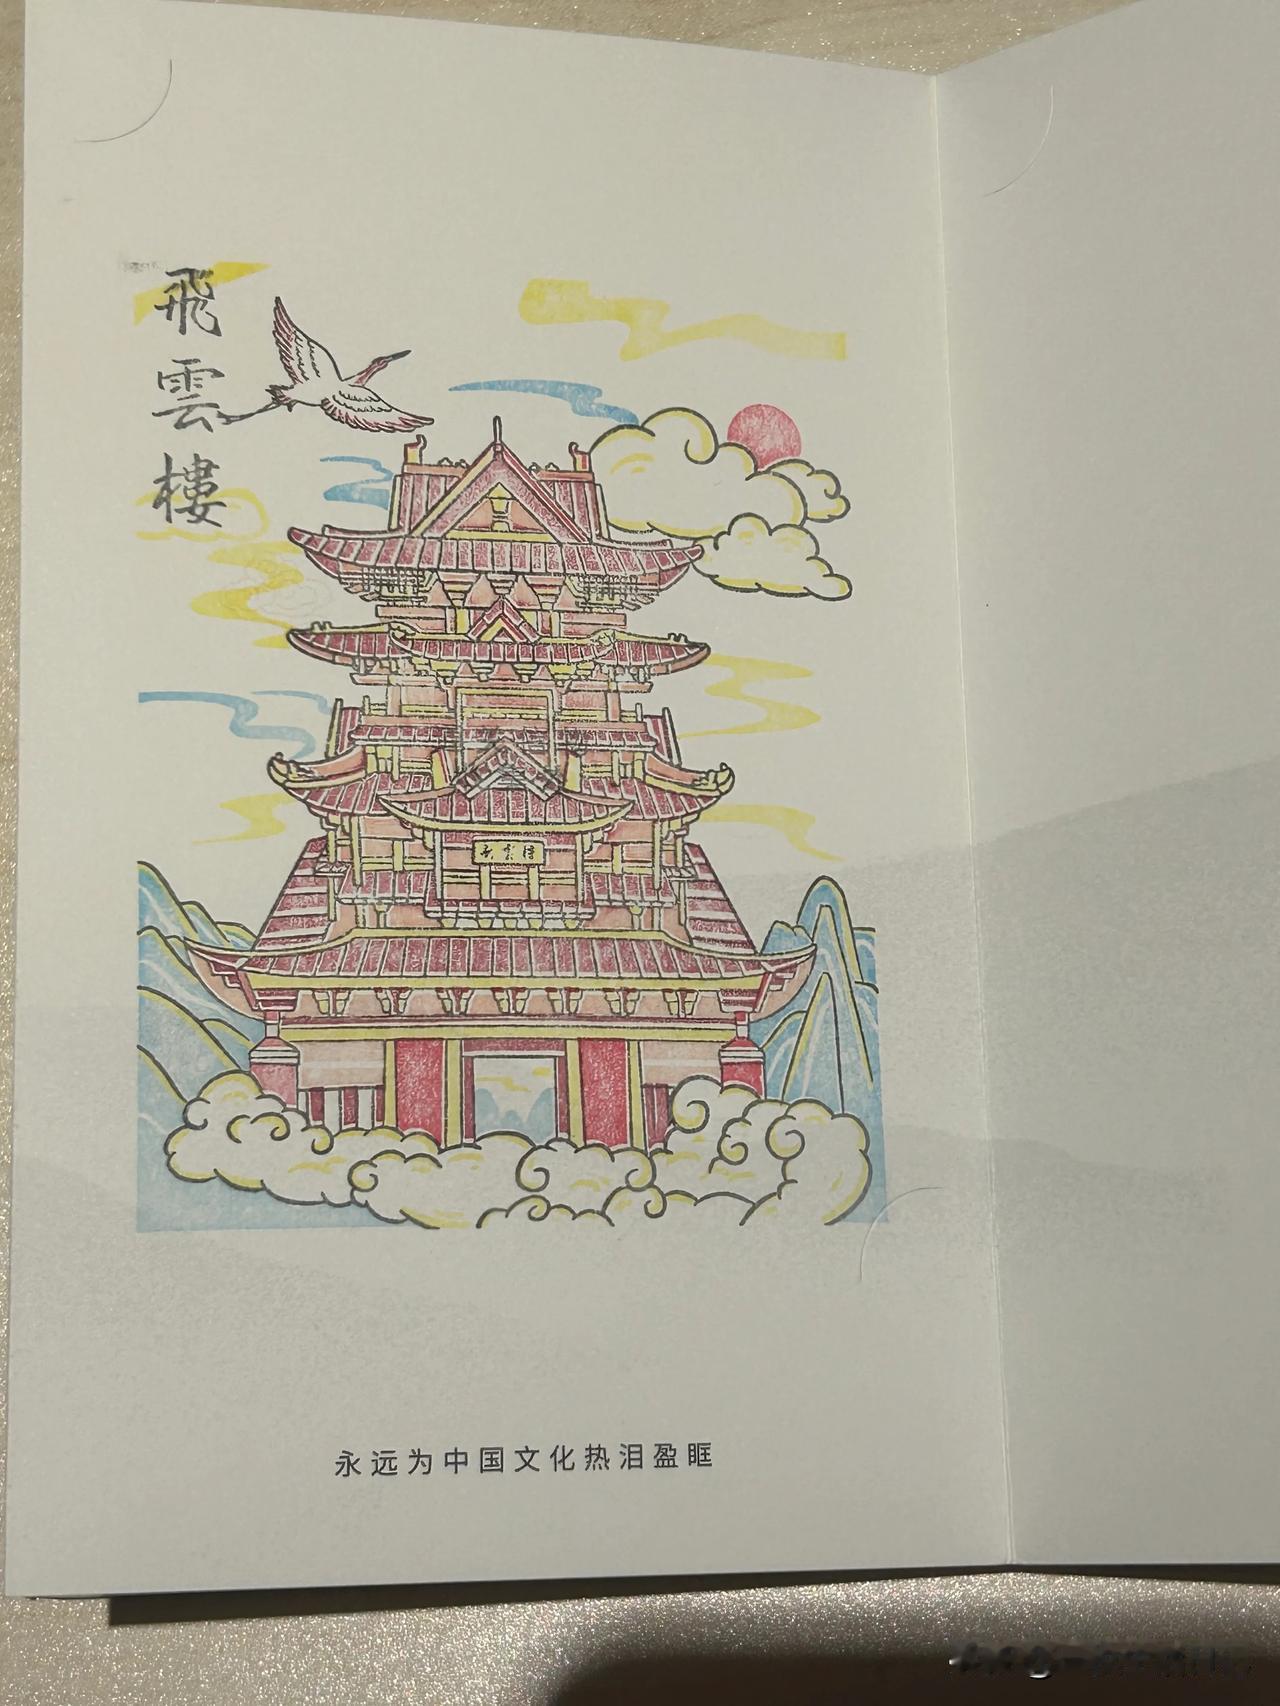 飛雲樓
永远为中国文化热泪盈眶